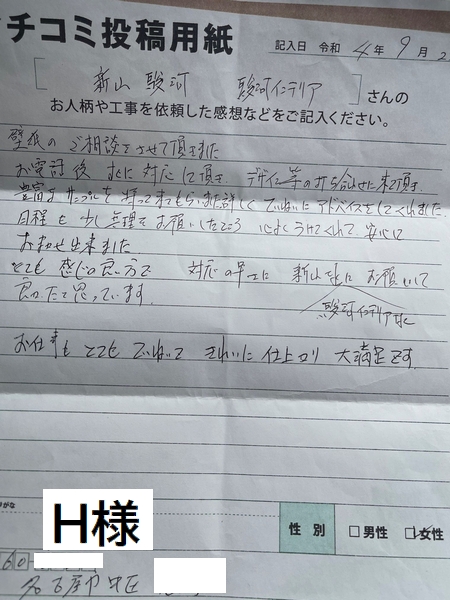 チコミ投稿用紙
記入日 令和 4年 9月 2
新山 駿河 駿河インテリア さんの
お人柄や工事を依頼した感想などをご記入ください。
壁紙のご相談をさせて頂きました
お電話後 すぐに対応して頂き、デザイン等の打ち合わせに来て頂き、
豊富なサンプルを持って来てもらいまた詳しくていねいにアドバイスをしてくれました。
日程も少し無理をお願いしたところ 心よくうけてくれて、安心して
おまかせ出来ました
とても感じの良い方で 対応の早さに 新山さんにお願いして
良かったと思っています。
駿河インテリアさんに
お仕事もとてもていねいで きれいに仕上り 大満足です。
りがな
H様
性別 □男性 □女性
60
名古屋市中区